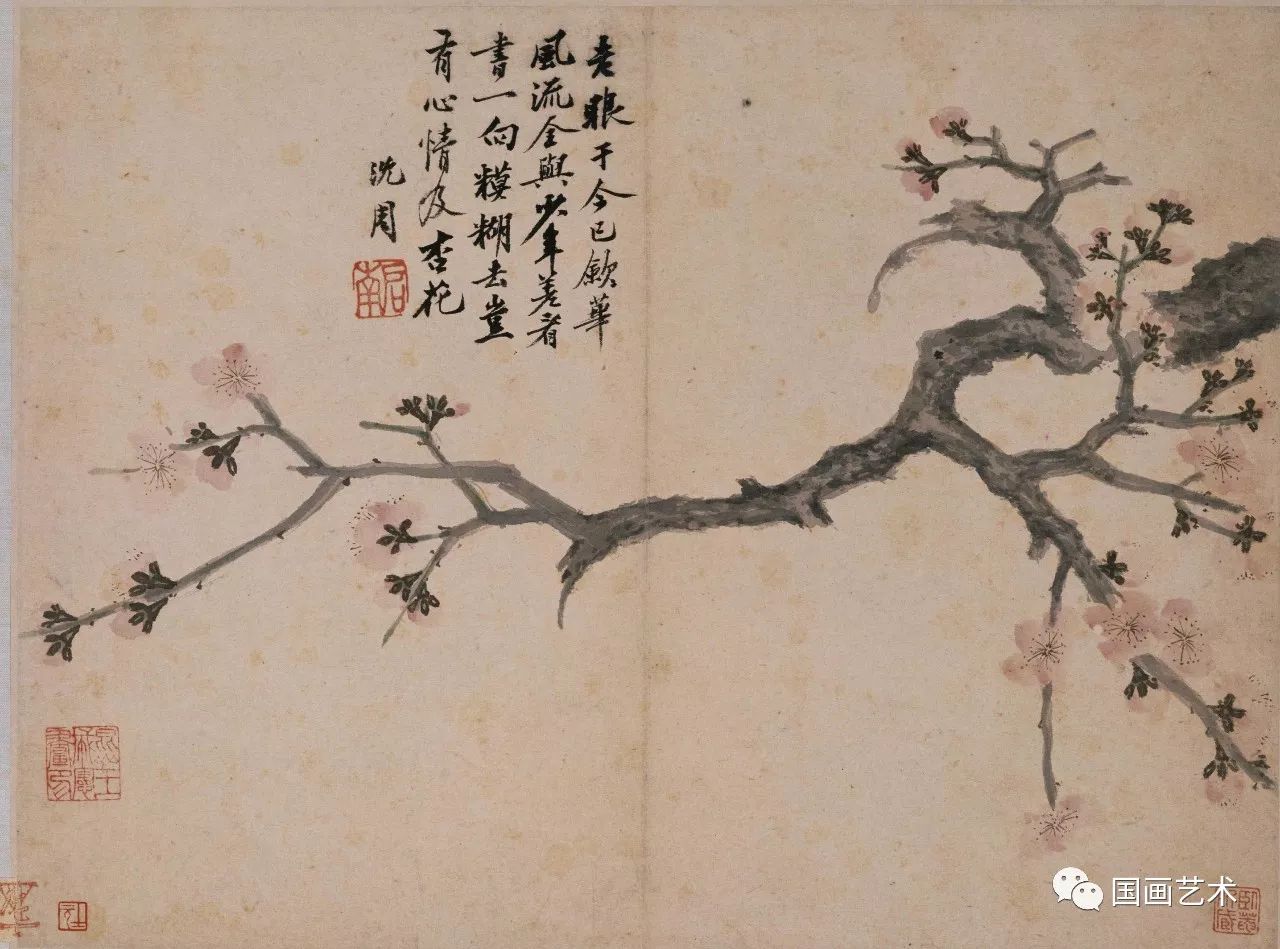 老眼于今已歛華
風流全與少年差看
書一向糢糊去豈
有心情及杏花
沈周
啟南
国画艺术